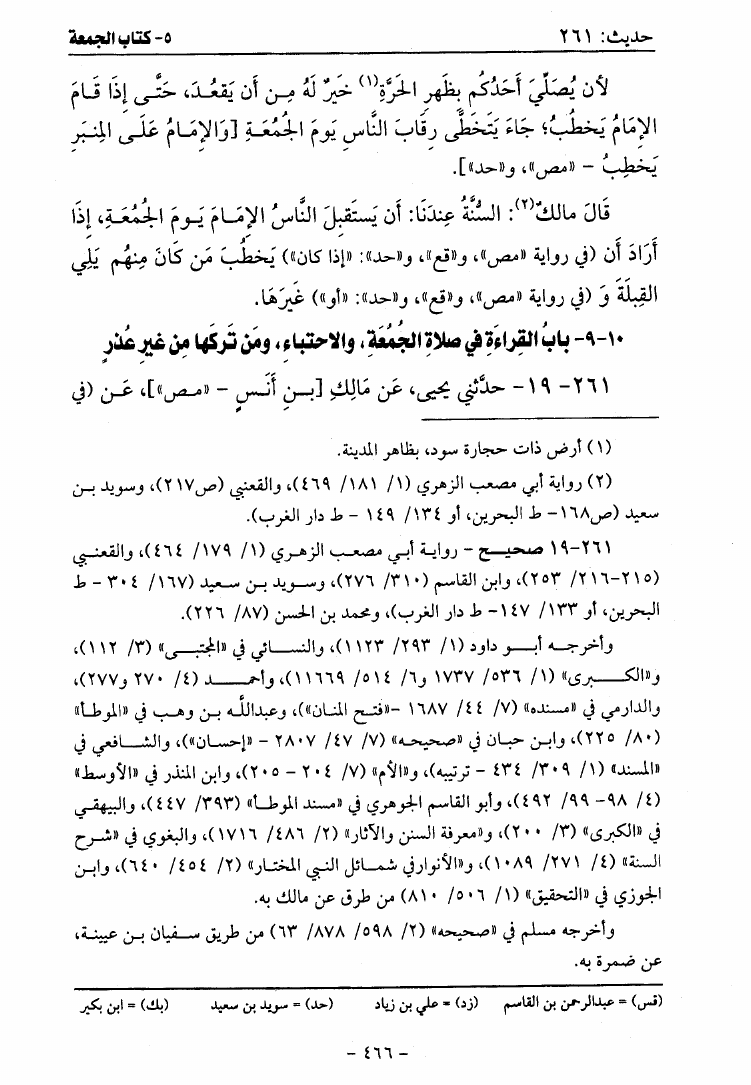 حديث: ٢٦١ ٥- كتاب الجمعة
لأن يُصَلِّيَ أَحَدُكُم بِظَهرِ الحَرَّةِ(١) خَيرٌ لَهُ مِـن أَن يَقعُـدَ، حَتَّى إِذَا قَـامَ
الإِمَامُ يَخطُبُ؛ جَاءَ يَتَخَطَّى رِقَابَ النَّاسِ يَومَ الجُمُعَـةِ [وَالإِمَـامُ عَلَـى المِنـبَرِ
يَخطِبُ - «مص»، و«حد»].
قَالَ مالكٌ(٢): السُّنَّةُ عِندَنَا: أَن يَستَقبِلَ النَّاسُ الإِمَـامَ يَـومَ الجُمُعَـةِ، إِذَا
أَرَادَ أَن (في رواية «مص»، و«قع»، و«حد»: «إذا كان») يَخطُبَ مَن كَانَ مِنهُم يَلِي
القِبلَةَ وَ (في رواية «مص»، و«قع»، و«حد»: «أو») غَيرَهَا.
١٠-٩- بابُ القِراءَةِ في صلاةِ الجُمُعَةِ، والاحتباءِ، ومَن تَركَها مِن غيرِ عُذرٍ
٢٦١- ١٩- حدَّثني يحيى، عَن مَالِكِ [بـنِ أَنَـسٍ - «مـص»]، عَـن (في
(١) أرض ذات حجارة سود، بظاهر المدينة.
(٢) رواية أبي مصعب الزهري (١/ ١٨١/ ٤٦٩)، والقعنبي (ص٢١٧)، وسويد بـن
سعيد (ص١٦٨- ط البحرين، أو ١٣٤/ ١٤٩ - ط دار الغرب).
٢٦١-١٩ صحيـح - روايـة أبـي مصعـب الزهـري (١/ ١٧٩/ ٤٦٤)، والقعنـبي
(٢١٥-٢١٦/ ٢٥٣)، وابن القاسم (٣١٠/ ٢٧٦)، وسـويد بـن سـعيد (١٦٧/ ٣٠٤ - ط
البحرين، أو ١٣٣/ ١٤٧- ط دار الغرب)، ومحمد بن الحسن (٨٧/ ٢٢٦).
وأخرجـه أبـو داود (١/ ٢٩٣/ ١١٢٣)، والنسـائي في «المجتبـى» (٣/ ١١٢)،
و«الكـبرى» (١/ ٥٣٦/ ١٧٣٧ و٦/ ٥١٤/ ١١٦٦٩)، وأحمـد (٤/ ٢٧٠ و٢٧٧)،
والدارمي في «مسنده» (٧/ ٤٤/ ١٦٨٧ -«فتـح المنـان»)، وعبدالله بـن وهـب في «الموطـأ»
(٨٠/ ٢٢٥)، وابـن حبـان في «صحيحـه» (٧/ ٤٧/ ٢٨٠٧ - «إحسـان»)، والشـافعي في
«المسند» (١/ ٣٠٩/ ٤٣٤ - ترتيبه)، و«الأم» (٧/ ٢٠٤ - ٢٠٥)، وابن المنذر في «الأوسط»
(٤/ ٩٨- ٩٩/ ٤٩٢)، وأبو القاسم الجوهري في «مسند الموطـأ» (٣٩٣/ ٤٤٧)، والبيهقي
في «الكبرى» (٣/ ٢٠٠)، و«معرفة السنن والآثار» (٢/ ٤٨٦/ ١٧١٦)، والبغوي في «شرح
السنة» (٤/ ٢٧١/ ١٠٨٩)، و«الأنوارفي شمـائل النبي المختـار» (٢/ ٤٥٤/ ٦٤٠)، وابـن
الجوزي في «التحقيق» (١/ ٥٠٦/ ٨١٠) من طرق عن مالك به.
وأخرجه مسلم في «صحيحه» (٢/ ٥٩٨/ ٨٧٨/ ٦٣) من طريق سـفيان بـن عيينـة،
عن ضمرة به.
(قس) = عبدالرحمن بن القاسم (زد) = علي بن زياد (حد) = سويد بن سعيد (بك) = ابن بكير
- ٤٦٦ -